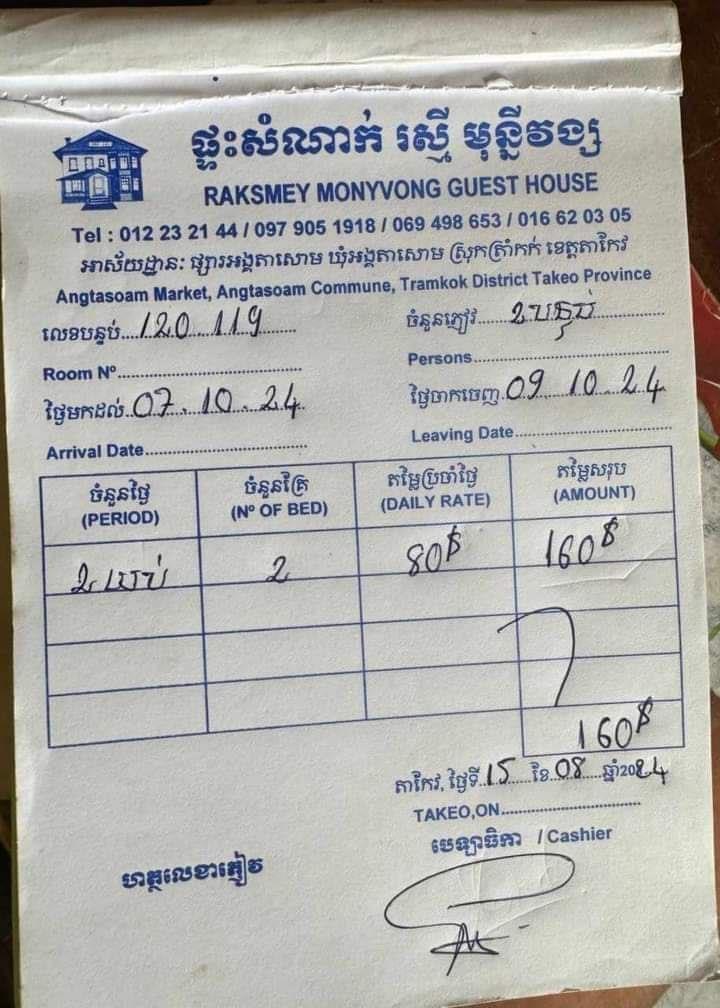 ផ្ទះសំណាក់ រស្មី មុន្នីវង្ស
RAKSMEY MONYVONG GUEST HOUSE
Tel : 012 23 21 44 / 097 905 1918 / 069 498 653 / 016 62 03 05
អាស័យដ្ឋានៈ ផ្សារអង្គតាសោម ឃុំអង្គតាសោម ស្រុកត្រាំកក់ ខេត្តតាកែវ
Angtasoam Market, Angtasoam Commune, Tramkok District Takeo Province
លេខបន្ទប់...120.119............ ចំនួនភ្ញៀវ.....2បន្ទប់............
Room Nº............................... Persons.................................
ថ្ងៃមកដល់.07.10.24 ថ្ងៃចាកចេញ.09.10.24
Arrival Date........................... Leaving Date..........................
ចំនួនថ្ងៃ ចំនួនគ្រែ តម្លៃប្រចាំថ្ងៃ តម្លៃសរុប
(PERIOD) (Nº OF BED) (DAILY RATE) (AMOUNT)
2យប់ 2 80$ 160$
160$
តាកែវ, ថ្ងៃទី.15....ខែ.08....ឆ្នាំ2024
TAKEO,ON.........................
បេឡាធិកា / Cashier
ហត្ថលេខាភ្ញៀវ